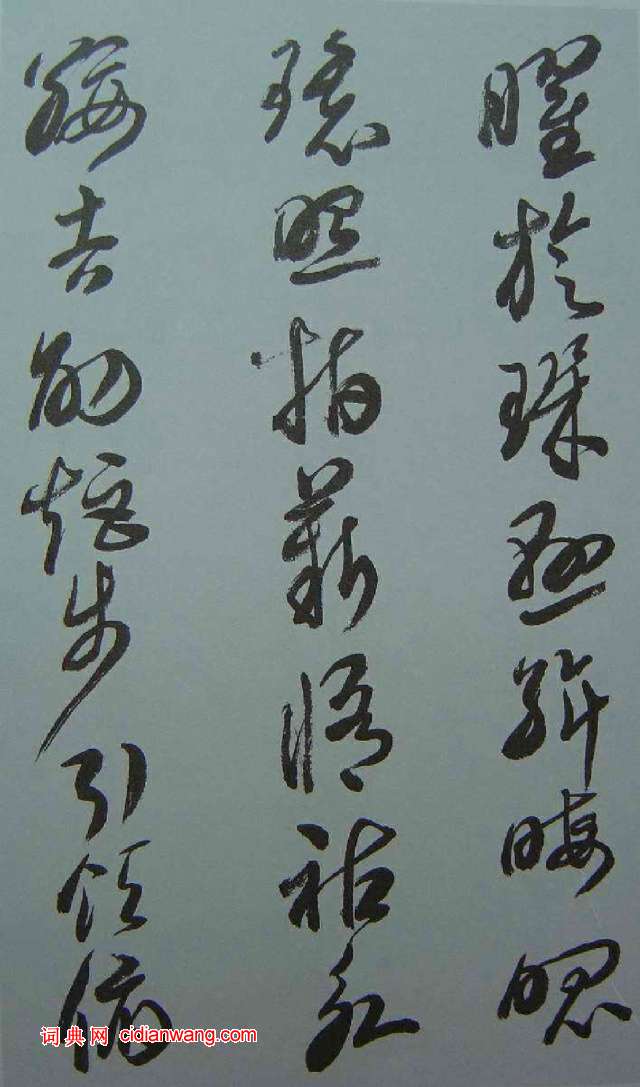 曜旋璣懸斡晦魄
環照指薪脩祜永
綏吉劭矩步引領俯
词典网 cidianwang.com